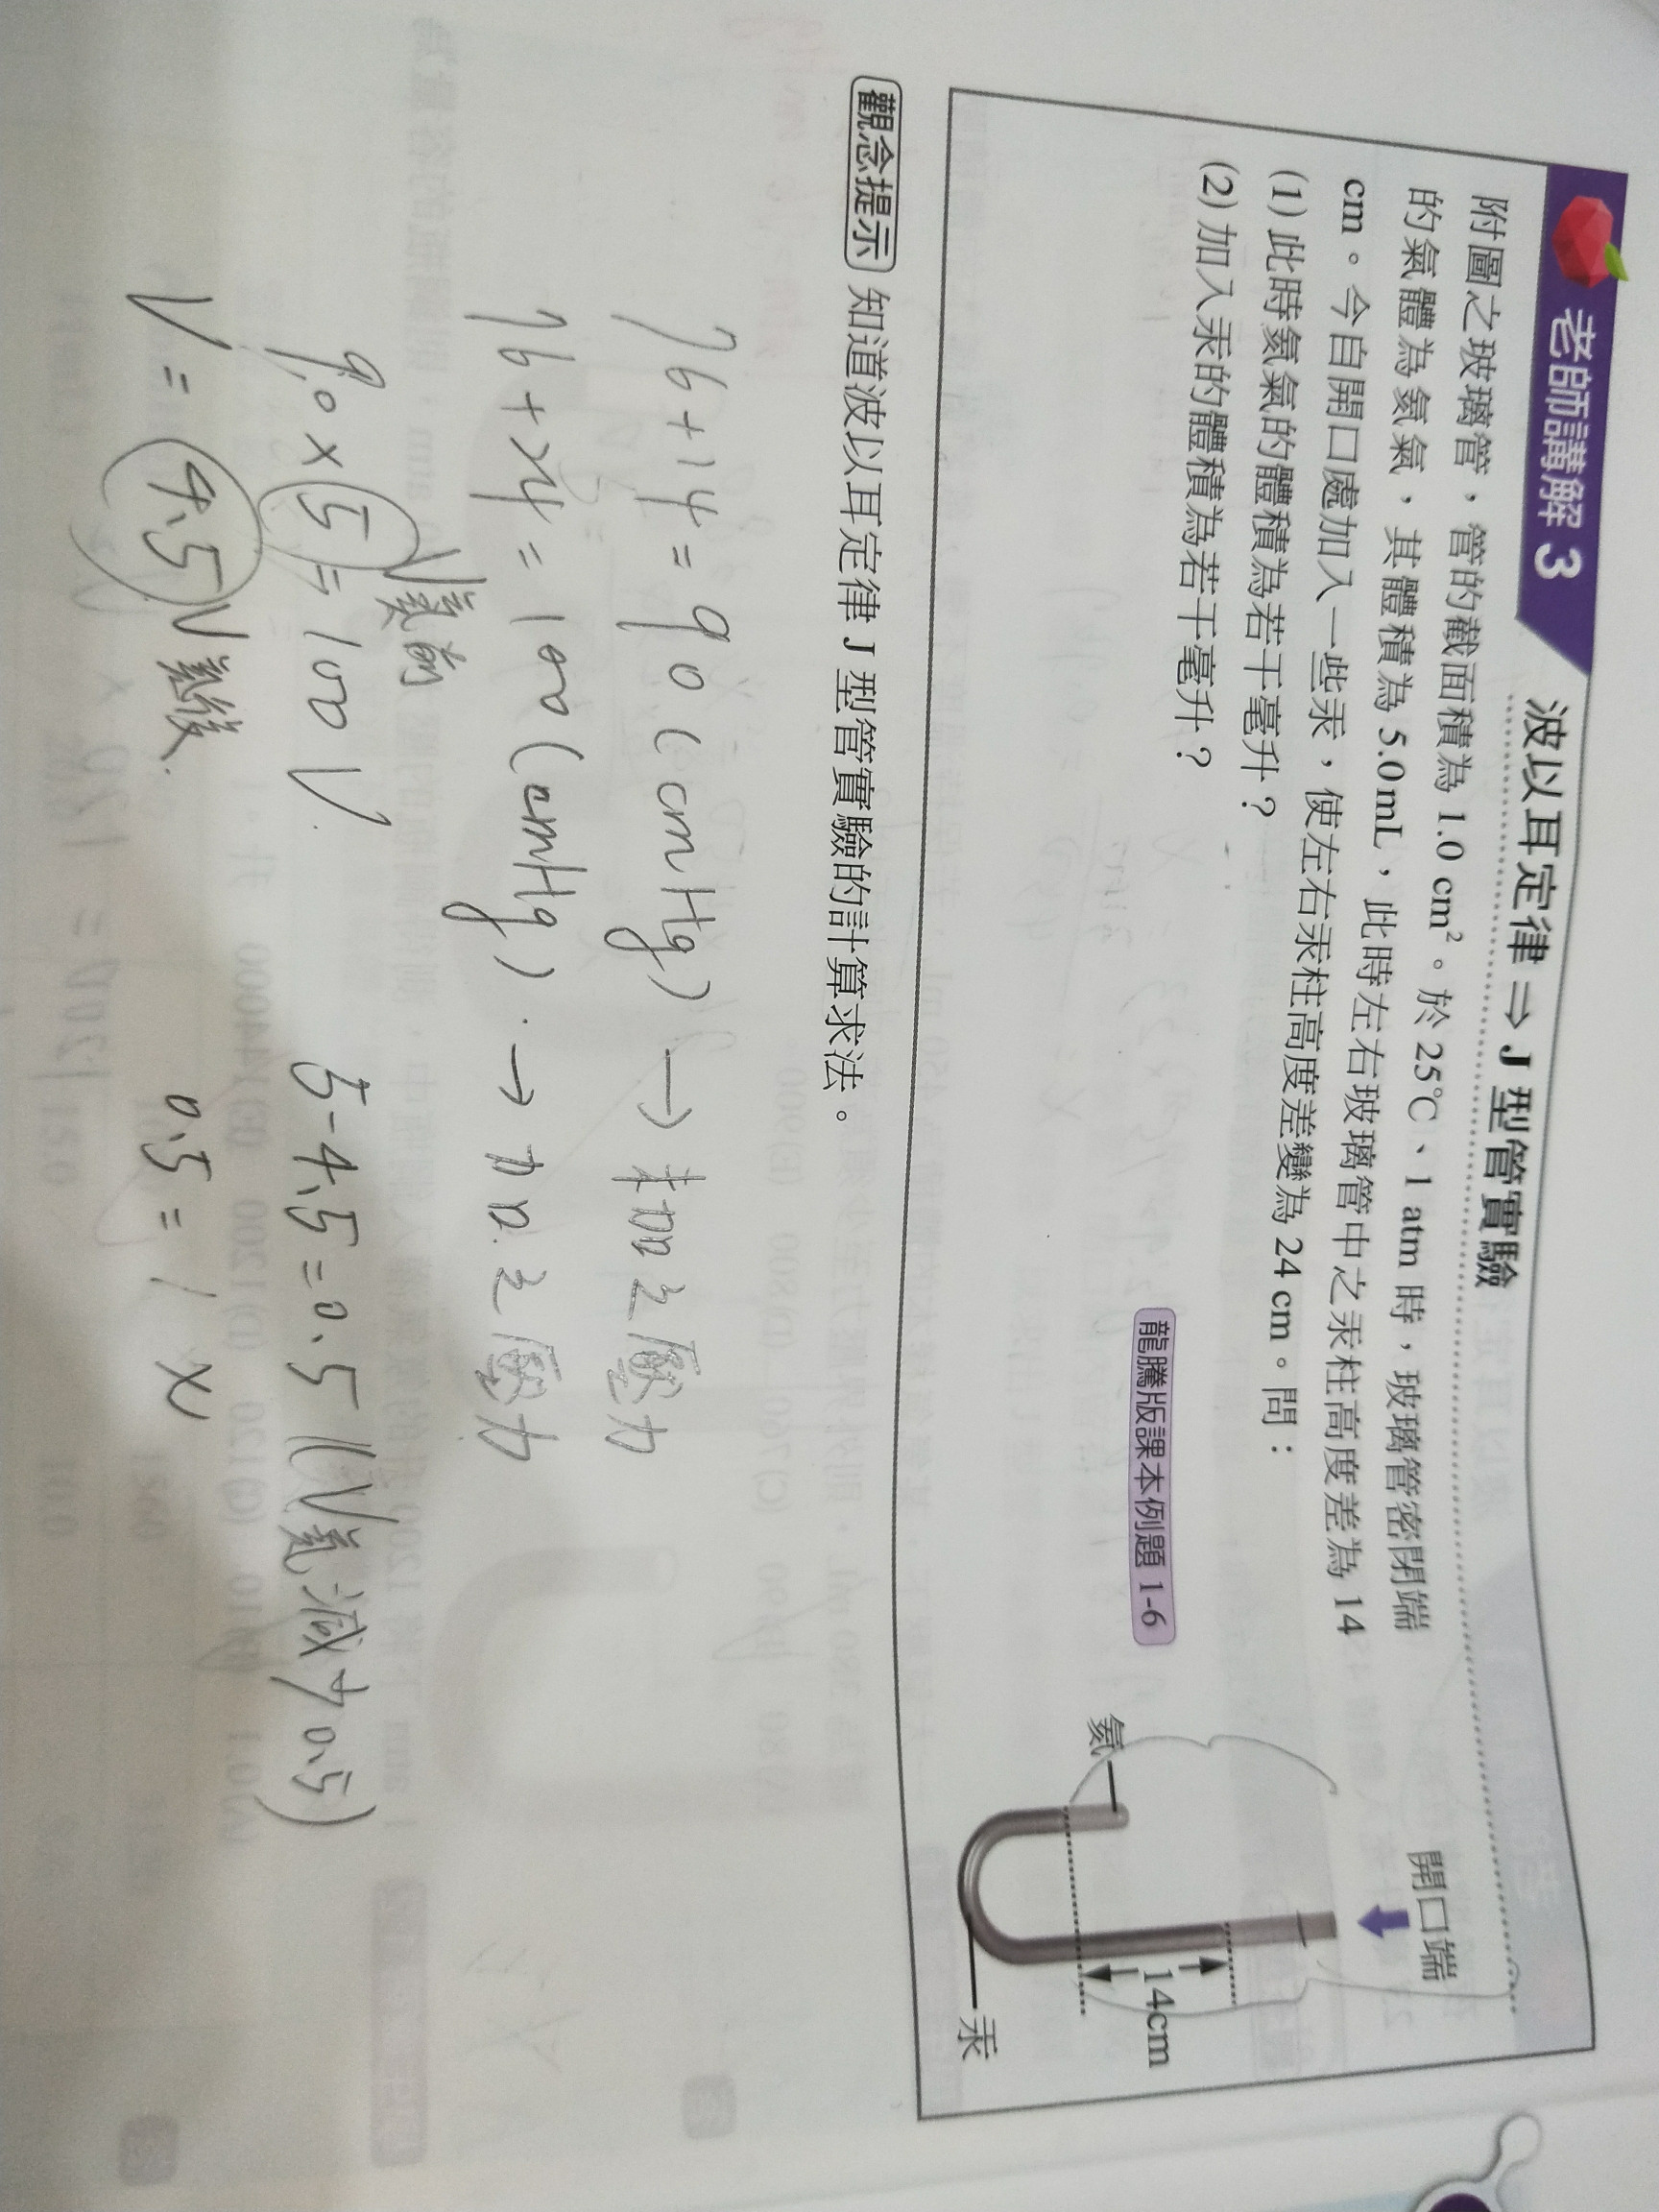 老師講解 3
波以耳定律 ⇒ J 型管實驗
附圖之玻璃管，管的截面積為 1.0 cm²。於 25℃、1 atm 時，玻璃管密閉端
的氣體為氦氣，其體積為 5.0 mL，此時左右玻璃管中之汞柱高度差為 14
cm。今自開口處加入一些汞，使左右汞柱高度差變為 24 cm。問：
(1) 此時氦氣的體積為若干毫升？
(2) 加入汞的體積為若干毫升？
龍騰版課本例題 1-6
開口端
14cm
氦
汞
觀念提示 知道波以耳定律 J 型管實驗的計算求法。
76+14=90(cmHg) → 未加之壓力
76+24=100(cmHg). → 加之壓力
V氦前
90×5=100V
V=4.5 V氦後
5-4.5=0.5 (V氦減少0.5)
0.5=1×